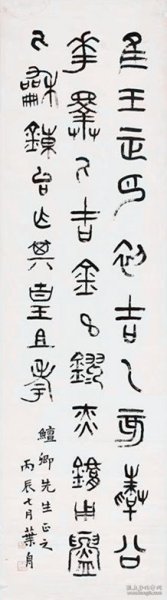 隹王正月初吉乙亥邾公
華擇氒吉金玄鏐赤鏞用鑄
氒龢鐘台乍其皇且考
鱣卿先生正之
丙辰七月葉舟